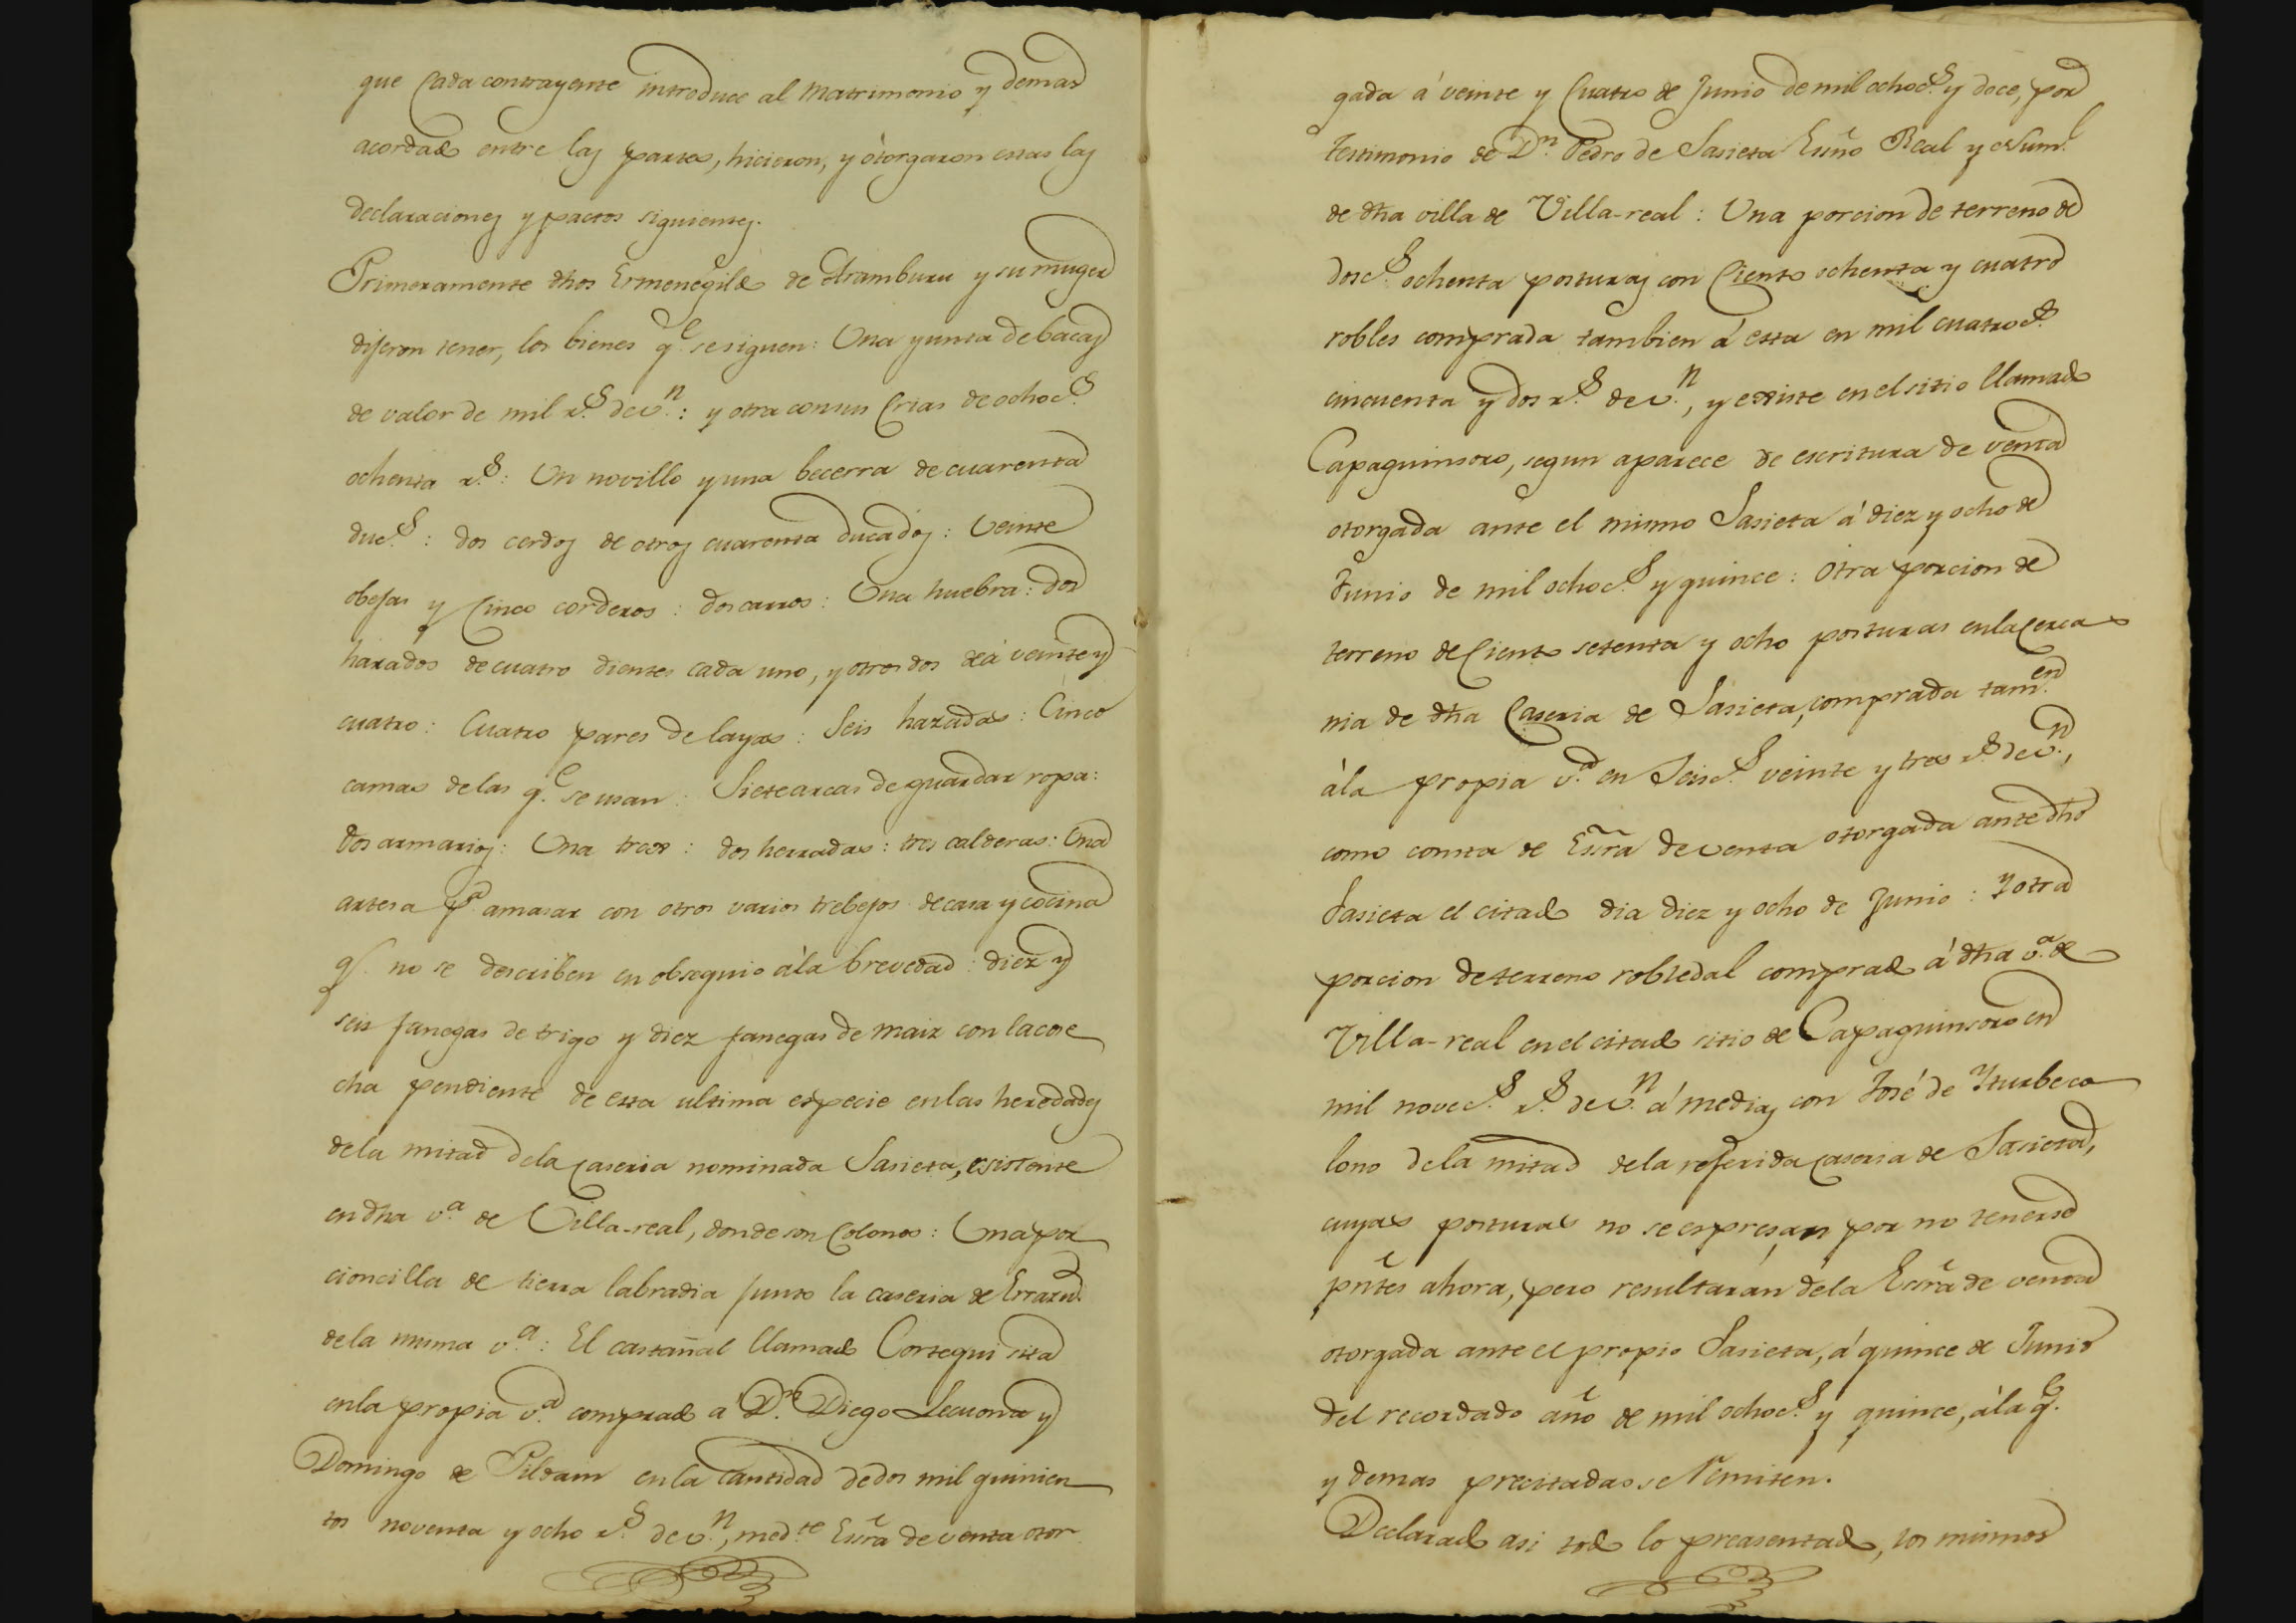 que Cada contrayente introduce al Matrimonio y demas
acordado entre las partes, hicieron, y ótorgaron estas las
declaraciones y pactos siguientes.
Primeramente dhos Ermenegildo de Aramburu y su muger
dijeron tener, los bienes q.e se siguen: Una yunta de bacas
de valor de mil r.s de v.n: y otra con sus Crias de ochoc.s
ochenta r.s: Un novillo y una becerra de cuarenta
duc.s: dos cerdos de otros cuarenta ducados: Veinte
obejas y Cinco corderos: dos carros: Una huebra: dos
harados de cuatro dientes cada uno, y otros dos de á veinte y
cuatro: Cuatro pares de layas: Seis hazadas: Cinco
camas de las q.e se usan: Siete arcas de guardar ropa:
dos armarios: Una : dos herradas: tres calderas: Una
artesa p.a amasar con otros varios trebejos de casa y cocina
q.e no se describen en obsequio á la brevedad: diez y
seis fanegas de trigo y diez fanegas de maiz con la cose
cha pendiente de esta ultima especie en las heredades
de la mitad de la Caseria nominada Sasieta, esistente
en dha v.a de Villa-real, donde son Colonos: Una por
cioncilla de tierra labradia junto la caseria de
de la misma v.a: El castañal llamado Cortegui sita
en la propia v.a comprado a D.n Diego Lecuona y
Domingo de Pildain en la Cantidad de dos mil quinien
tos noventa y ocho r.s de v.n, med.te Essra de venta otor
gada á veinte y Cuatro de Junio de mil ochoc.s y doce, por
testimonio de D.n Pedro de Sasieta Essno Real y Num.l
de dha villa de Villa-real: Una porcion de terreno de
dosc.s ochenta posturas con Ciento ochenta y cuatro
robles comprada tambien á esta en mil cuatroc.s
cincuenta y dos r.s de v.n, y existe en el sitio llamado
Capaguinsoro, segun aparece de escritura de venta
otorgada ante el mismo Sasieta á diez y ocho de
Junio de mil ochoc.s y quince: Otra porcion de
terreno de Ciento setenta y ocho posturas en la Cerca
nia de dha Caseria de Sasieta, comprada tam.en
á la propia v.a en Seisc.s veinte y tres r.s de v.n,
como consta de Essra de venta otorgada ante dho
Sasieta el citado dia diez y ocho de Junio: Y otra
porcion de terreno robledal comprado á dha v.a de
Villa-real en el citado sitio de Capaguinsoro en
mil novec.s r.s de v.n á medias con José de Yturbe co
lono de la mitad de la referida Caseria de Sasieta,
cuyas posturas no se espresan por no tenerse
pntes ahora, pero resultarán de la Essra de venta
otorgada ante el propio Sasieta, á quince de Junio
del recordado año de mil ochoc.s y quince, á la q.e
y demas precitadas se remiten.
Declarado asi todo lo preasentado, los mismos